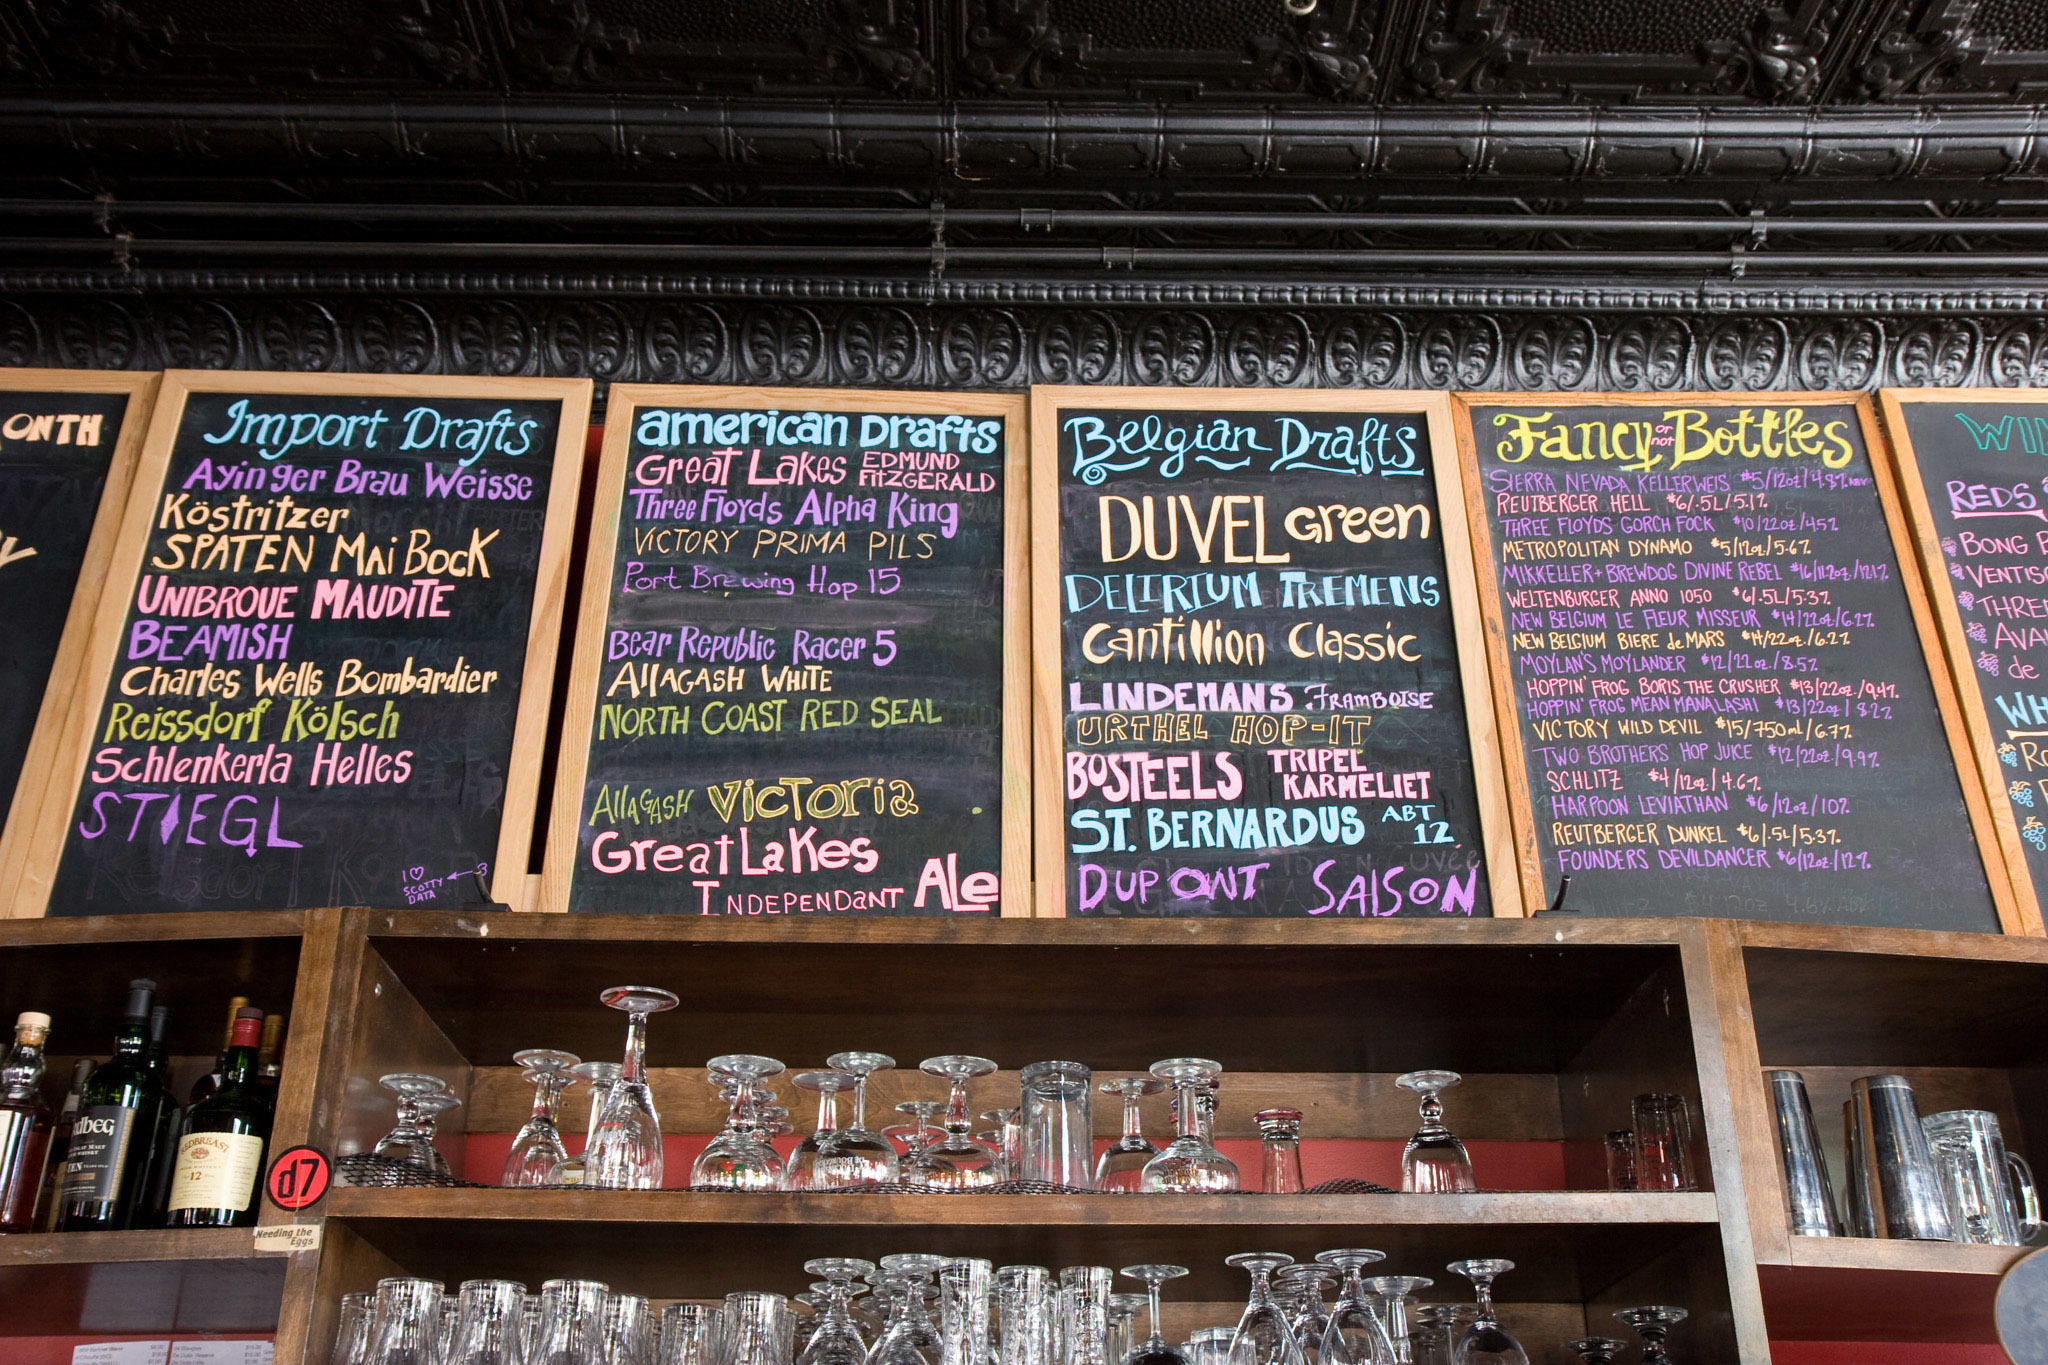 ONTH
Import Drafts
Ayinger Brau Weisse
Köstritzer
SPATEN Mai Bock
UNIBROUE MAUDITE
BEAMISH
Charles Wells Bombardier
Reissdorf Kölsch
Schlenkerla Helles
STIEGL
I ♡
SCOTTY
DATA
american Drafts
Great Lakes EDMUND FITZGERALD
Three Floyds Alpha King
VICTORY PRIMA PILS
Port Brewing Hop 15
Bear Republic Racer 5
Allagash White
NORTH COAST RED SEAL
Allagash Victoria
Great Lakes
Independant Ale
Belgian Drafts
DUVEL Green
DELIRIUM TREMENS
Cantillion Classic
LINDEMANS FRAMBOISE
URTHEL HOP-IT
BOSTEELS TRIPEL KARMELIET
ST. BERNARDUS ABT 12
DUPONT SAISON
Fancy or not Bottles
SIERRA NEVADA KELLERWEIS $5/12oz/4.8%
REUTBERGER HELL $6/.5L/5.1%
THREE FLOYDS GORCH FOCK $10/22oz/4.5%
METROPOLITAN DYNAMO $5/12oz/5.6%
MIKKELLER + BREWDOG DIVINE REBEL $16/11.2oz/12.1%
WELTENBURGER ANNO 1050 $6/.5L/5.3%
NEW BELGIUM LE FLEUR MISSEUR $14/22oz/6.2%
NEW BELGIUM BIERE de MARS $14/22oz/6.2%
MOYLAN'S MOYLANDER $12/22oz/8.5%
HOPPIN' FROG BORIS THE CRUSHER $13/22oz/9.4%
HOPPIN' FROG MEAN MANALASHI $13/22oz/8.2%
VICTORY WILD DEVIL $15/750ml/6.7%
TWO BROTHERS HOP JUICE $12/22oz/9.9%
SCHLITZ $4/12oz/4.6%
HARPOON LEVIATHAN $6/12oz/10%
REUTBERGER DUNKEL $6/.5L/5.3%
FOUNDERS DEVILDANCER $6/12oz/12%
WIN
REDS
BONG
VENTIS
THREE
AVA
de
WH
dbeg
TEN
REDBREAST
12
d7
Needing the
Eggs